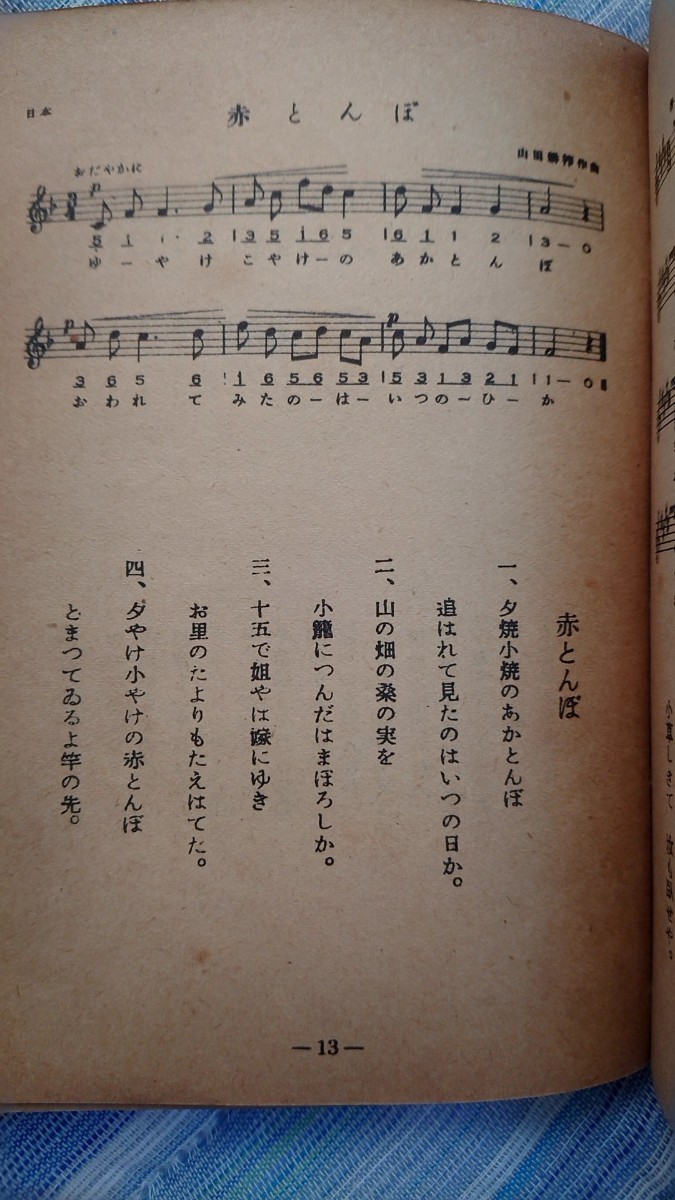 日本
赤とんぼ
山田耕筰作曲
おだやかに
p
5 1 1· 2 | 3 5 i 6 5 | 6 1 1 2 | 3 – 0
ゆ ー や け こ や け ー の あ か と ん ぼ
p p
3 6 5 6 | i 6 5 6 5 3 | 5 3 1 3 2 1 | 1 – 0
お わ れ て み た の ー は ー い つ の ー ひ ー か
赤とんぼ
一、夕焼小焼のあかとんぼ
追はれて見たのはいつの日か。
二、山の畑の桑の実を
小籠につんだはまぼろしか。
三、十五で姐やは嫁にゆき
お里のたよりもたえはてた。
四、夕やけ小やけの赤とんぼ
とまつてゐるよ竿の先。
— 13 —
小草しきて